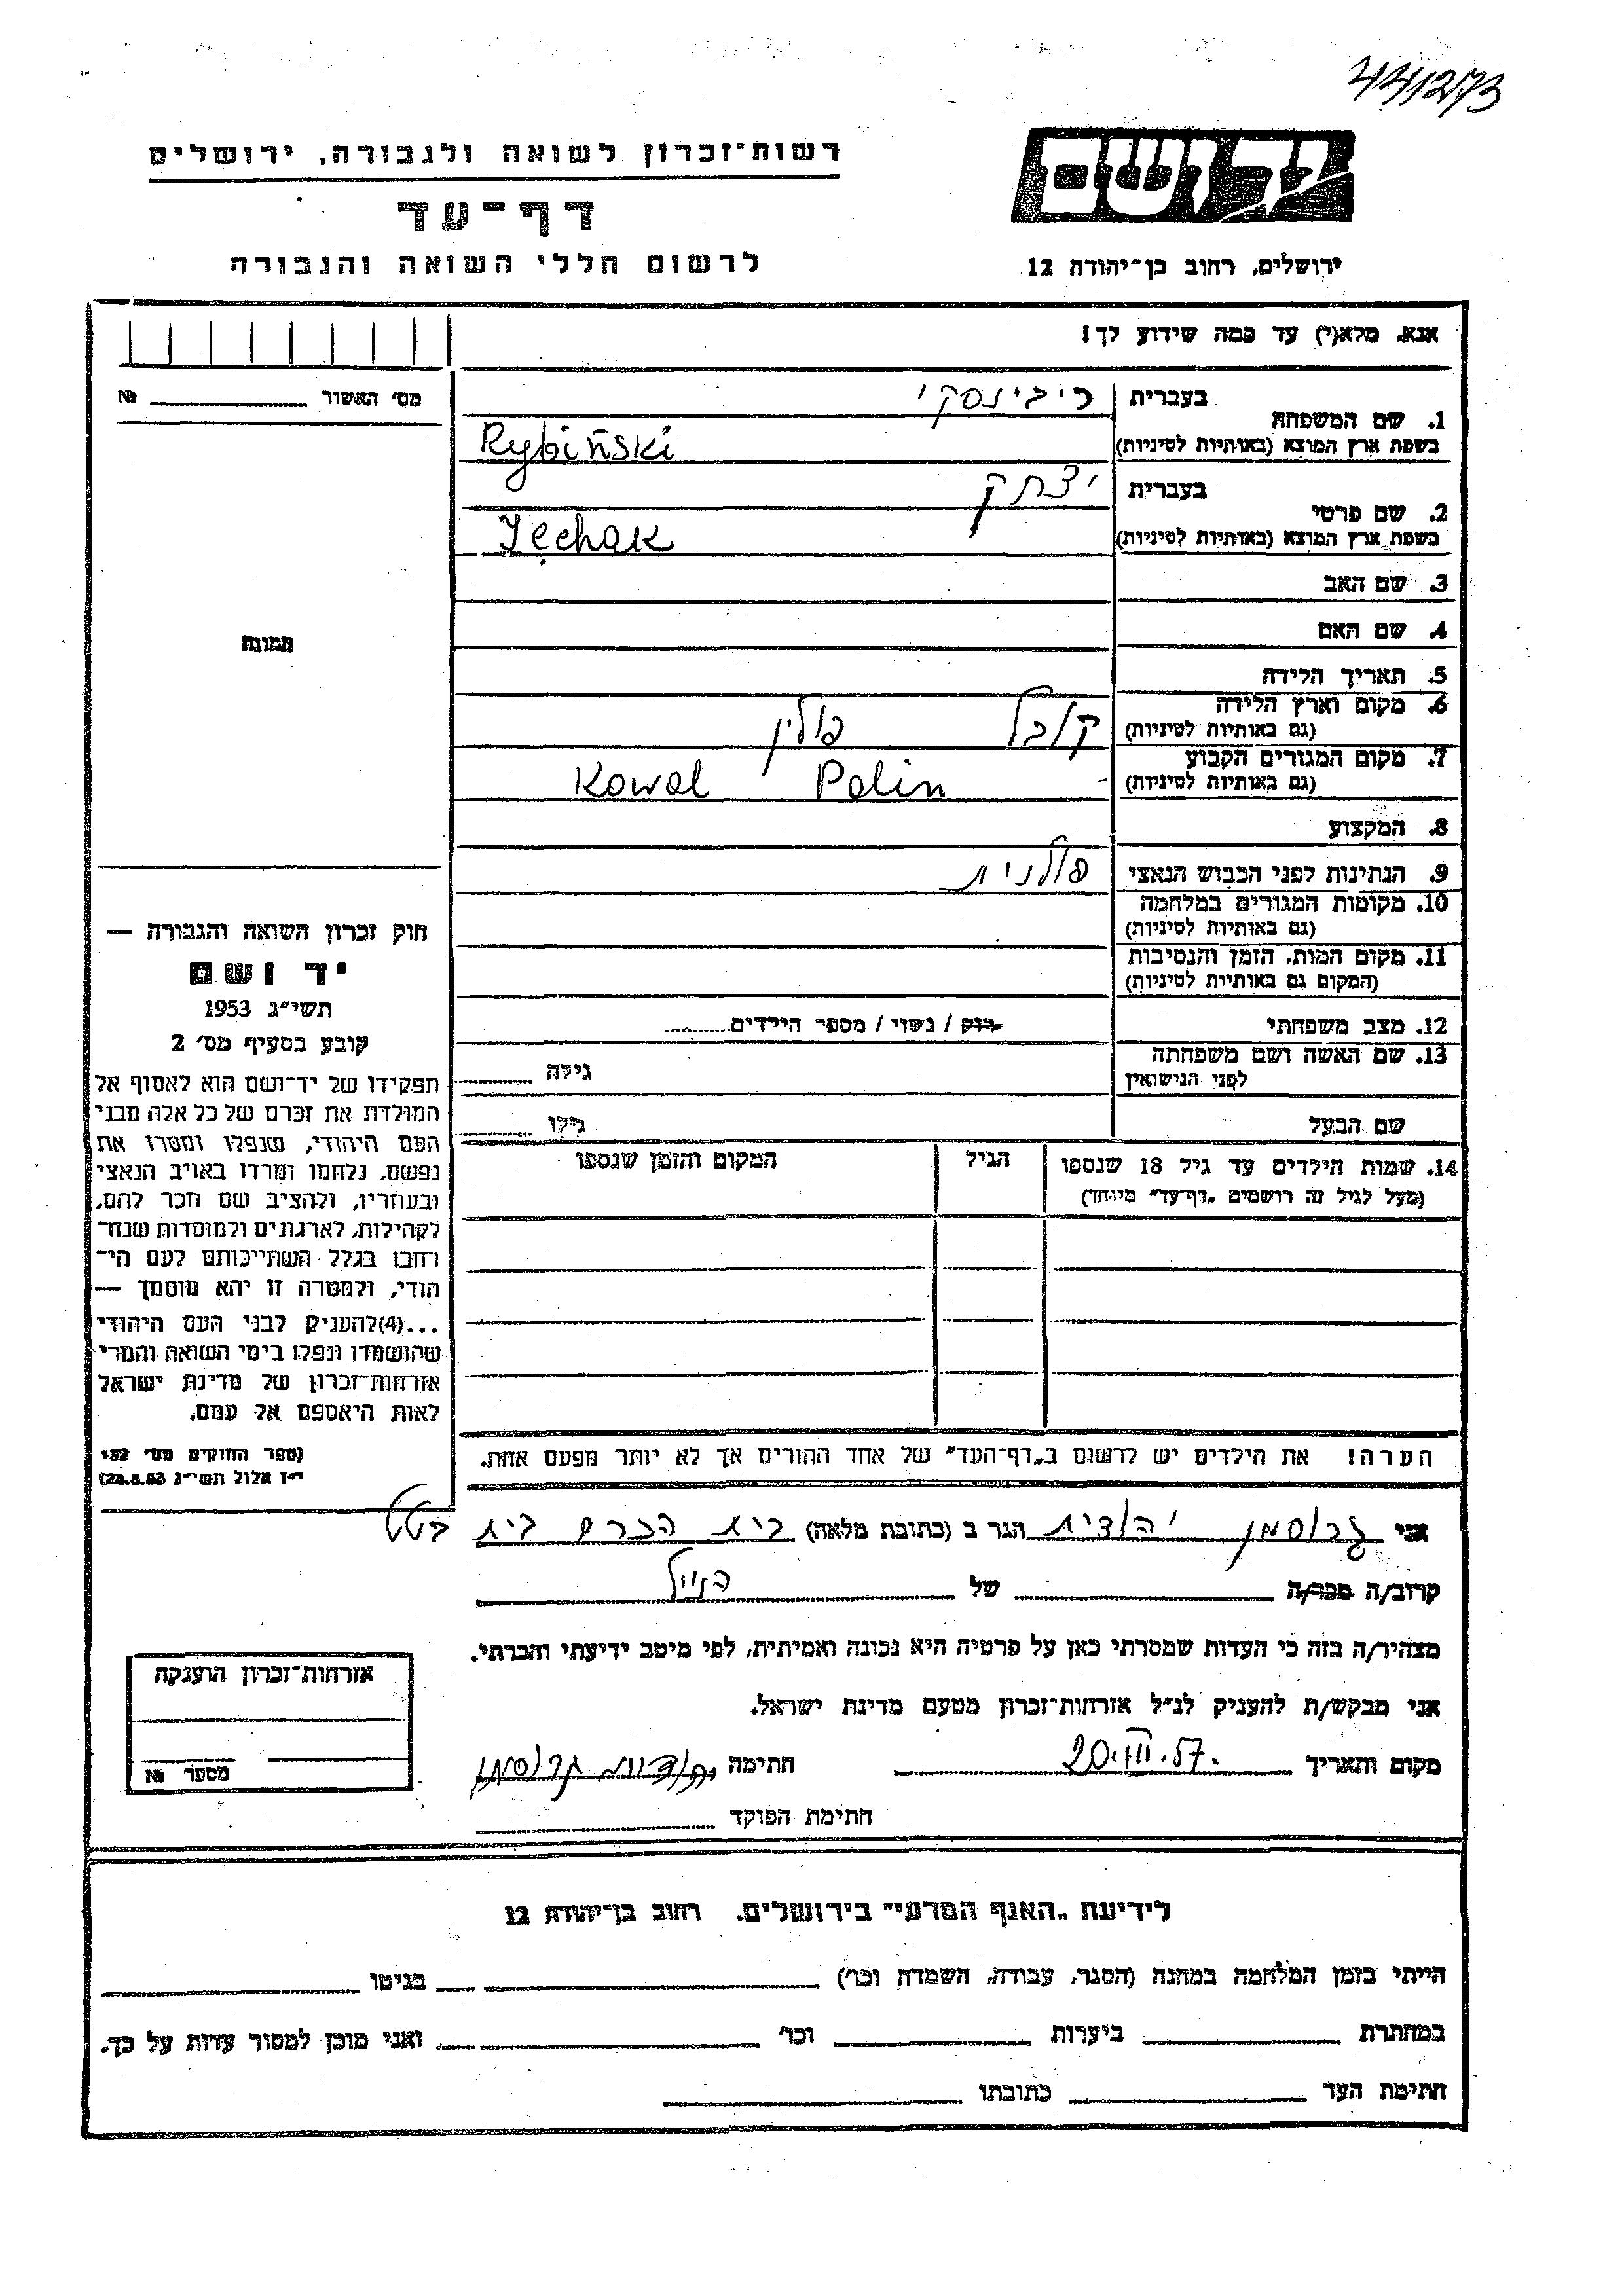 רשות־זכרון לשואה ולגבורה, ירושלים
דף־עד
לרשום חללי השואה והגבורה
יד ושם
ירושלים, רחוב בן־יהודה 12
אנא, מלא(י) עד כמה שידוע לך!
מס׳ האשור № 
1. שם המשפחה
בעברית ריבינסקי
בשפת ארץ המוצא (באותיות לטיניות) Rybiński
2. שם פרטי
בעברית יצחק
בשפת ארץ המוצא (באותיות לטיניות)
3. שם האב
4. שם האם
5. תאריך הלידה
6. מקום וארץ הלידה קובל פולין
(גם באותיות לטיניות)
7. מקום המגורים הקבוע Kowel Polin
(גם באותיות לטיניות)
8. המקצוע
9. הנתינות לפני הכבוש הנאצי פולנית
10. מקומות המגורים במלחמה
(גם באותיות לטיניות)
11. מקום המות, הזמן והנסיבות
(המקום גם באותיות לטיניות)
12. מצב משפחתי רוק / נשוי / מספר הילדים
13. שם האשה ושם משפחתה גילה
לפני הנישואין
שם הבעל גילו
14. שמות הילדים עד גיל 18 שנספו הגיל המקום והזמן שנספו
(מעל לגיל זה רושמים „דף־עד״ מיוחד)
הערה! את הילדים יש לרשום ב„דף־העד״ של אחד ההורים אך לא יותר מפעם אחת.
תמונה
חוק זכרון השואה והגבורה —
יד ושם
תשי״ג 1953
קובע בסעיף מס׳ 2
תפקידו של יד־ושם הוא לאסוף אל
המולדת את זכרם של כל אלה מבני
העם היהודי, שנפלו ומסרו את
נפשם, נלחמו ומרדו באויב הנאצי
ובעוזריו, ולהציב שם וזכר להם,
לקהילות, לארגונים ולמוסדות שנח־
רחבו בגלל השתייכותם לעם הי־
הודי, ולמטרה זו יהא מוסמך —
...(4)להעניק לבני העם היהודי
שהושמדו ונפלו בימי השואה והמרי
אזרחות־זכרון של מדינת ישראל
לאות היאספם אל עמם.
(ספר החוקים מס׳ 132
י״ז אלול תשי״ג 28.8.53)
אני גרוסמן יהודית הגר ב (כתובת מלאה) בית הכרם בית
קרוב/ה מכר/ה של הנ״ל
מצהיר/ה בזה כי העדות שמסרתי כאן על פרטיה היא נכונה ואמיתית, לפי מיטב ידיעתי והכרתי.
אני מבקש/ת להעניק לנ״ל אזרחות־זכרון מטעם מדינת ישראל.
מקום ותאריך 20.III.57. חתימה יהודית גרוסמן
חתימת הפוקד
אזרחות־זכרון הוענקה
מספר №
לידיעת „האגף המדעי״ בירושלים, רחוב בן־יהודה 12
הייתי בזמן המלחמה במחנה (הסגר, עבודה, השמדה וכו׳) בגיטו
במחתרת ביערות וכו׳ ואני מוכן למסור עדות על כך.
חתימת העד כתובתו